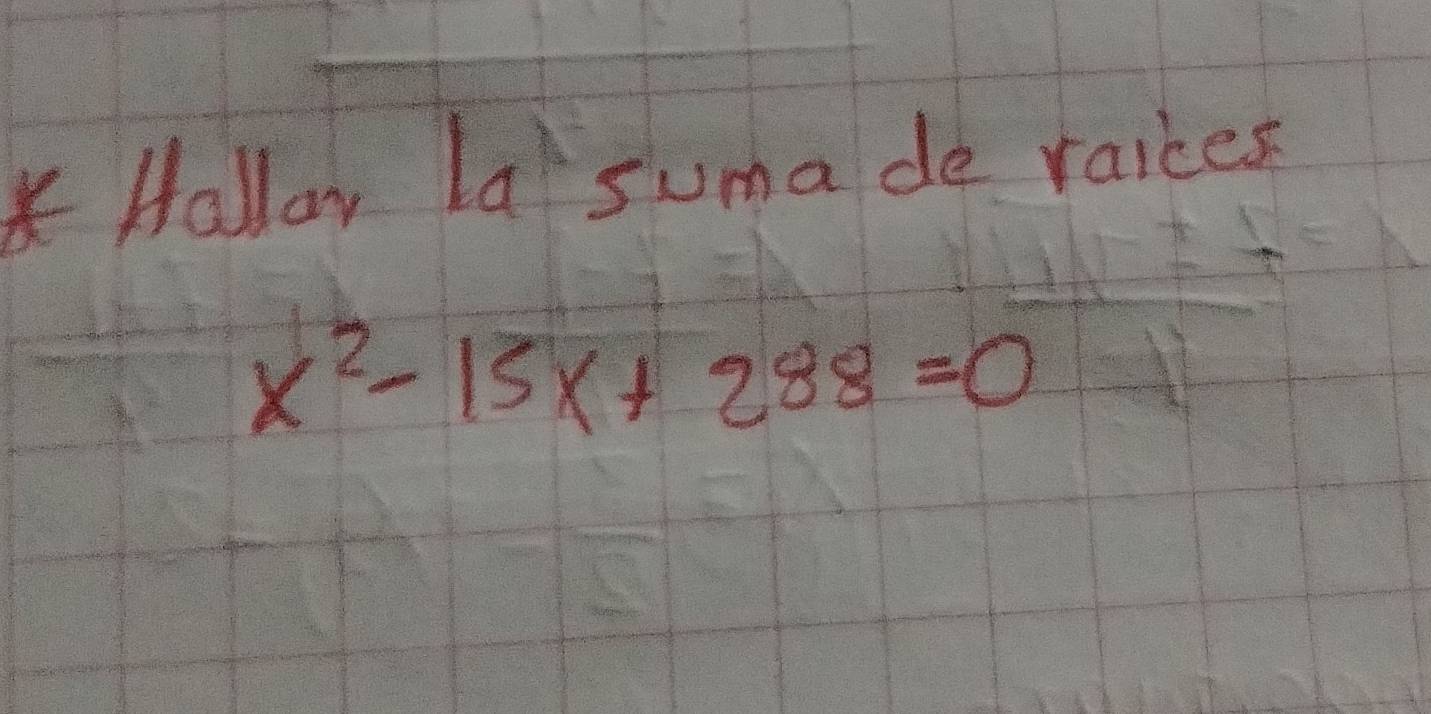 * Hallar la suma de raices
x² - 15x + 288 = 0